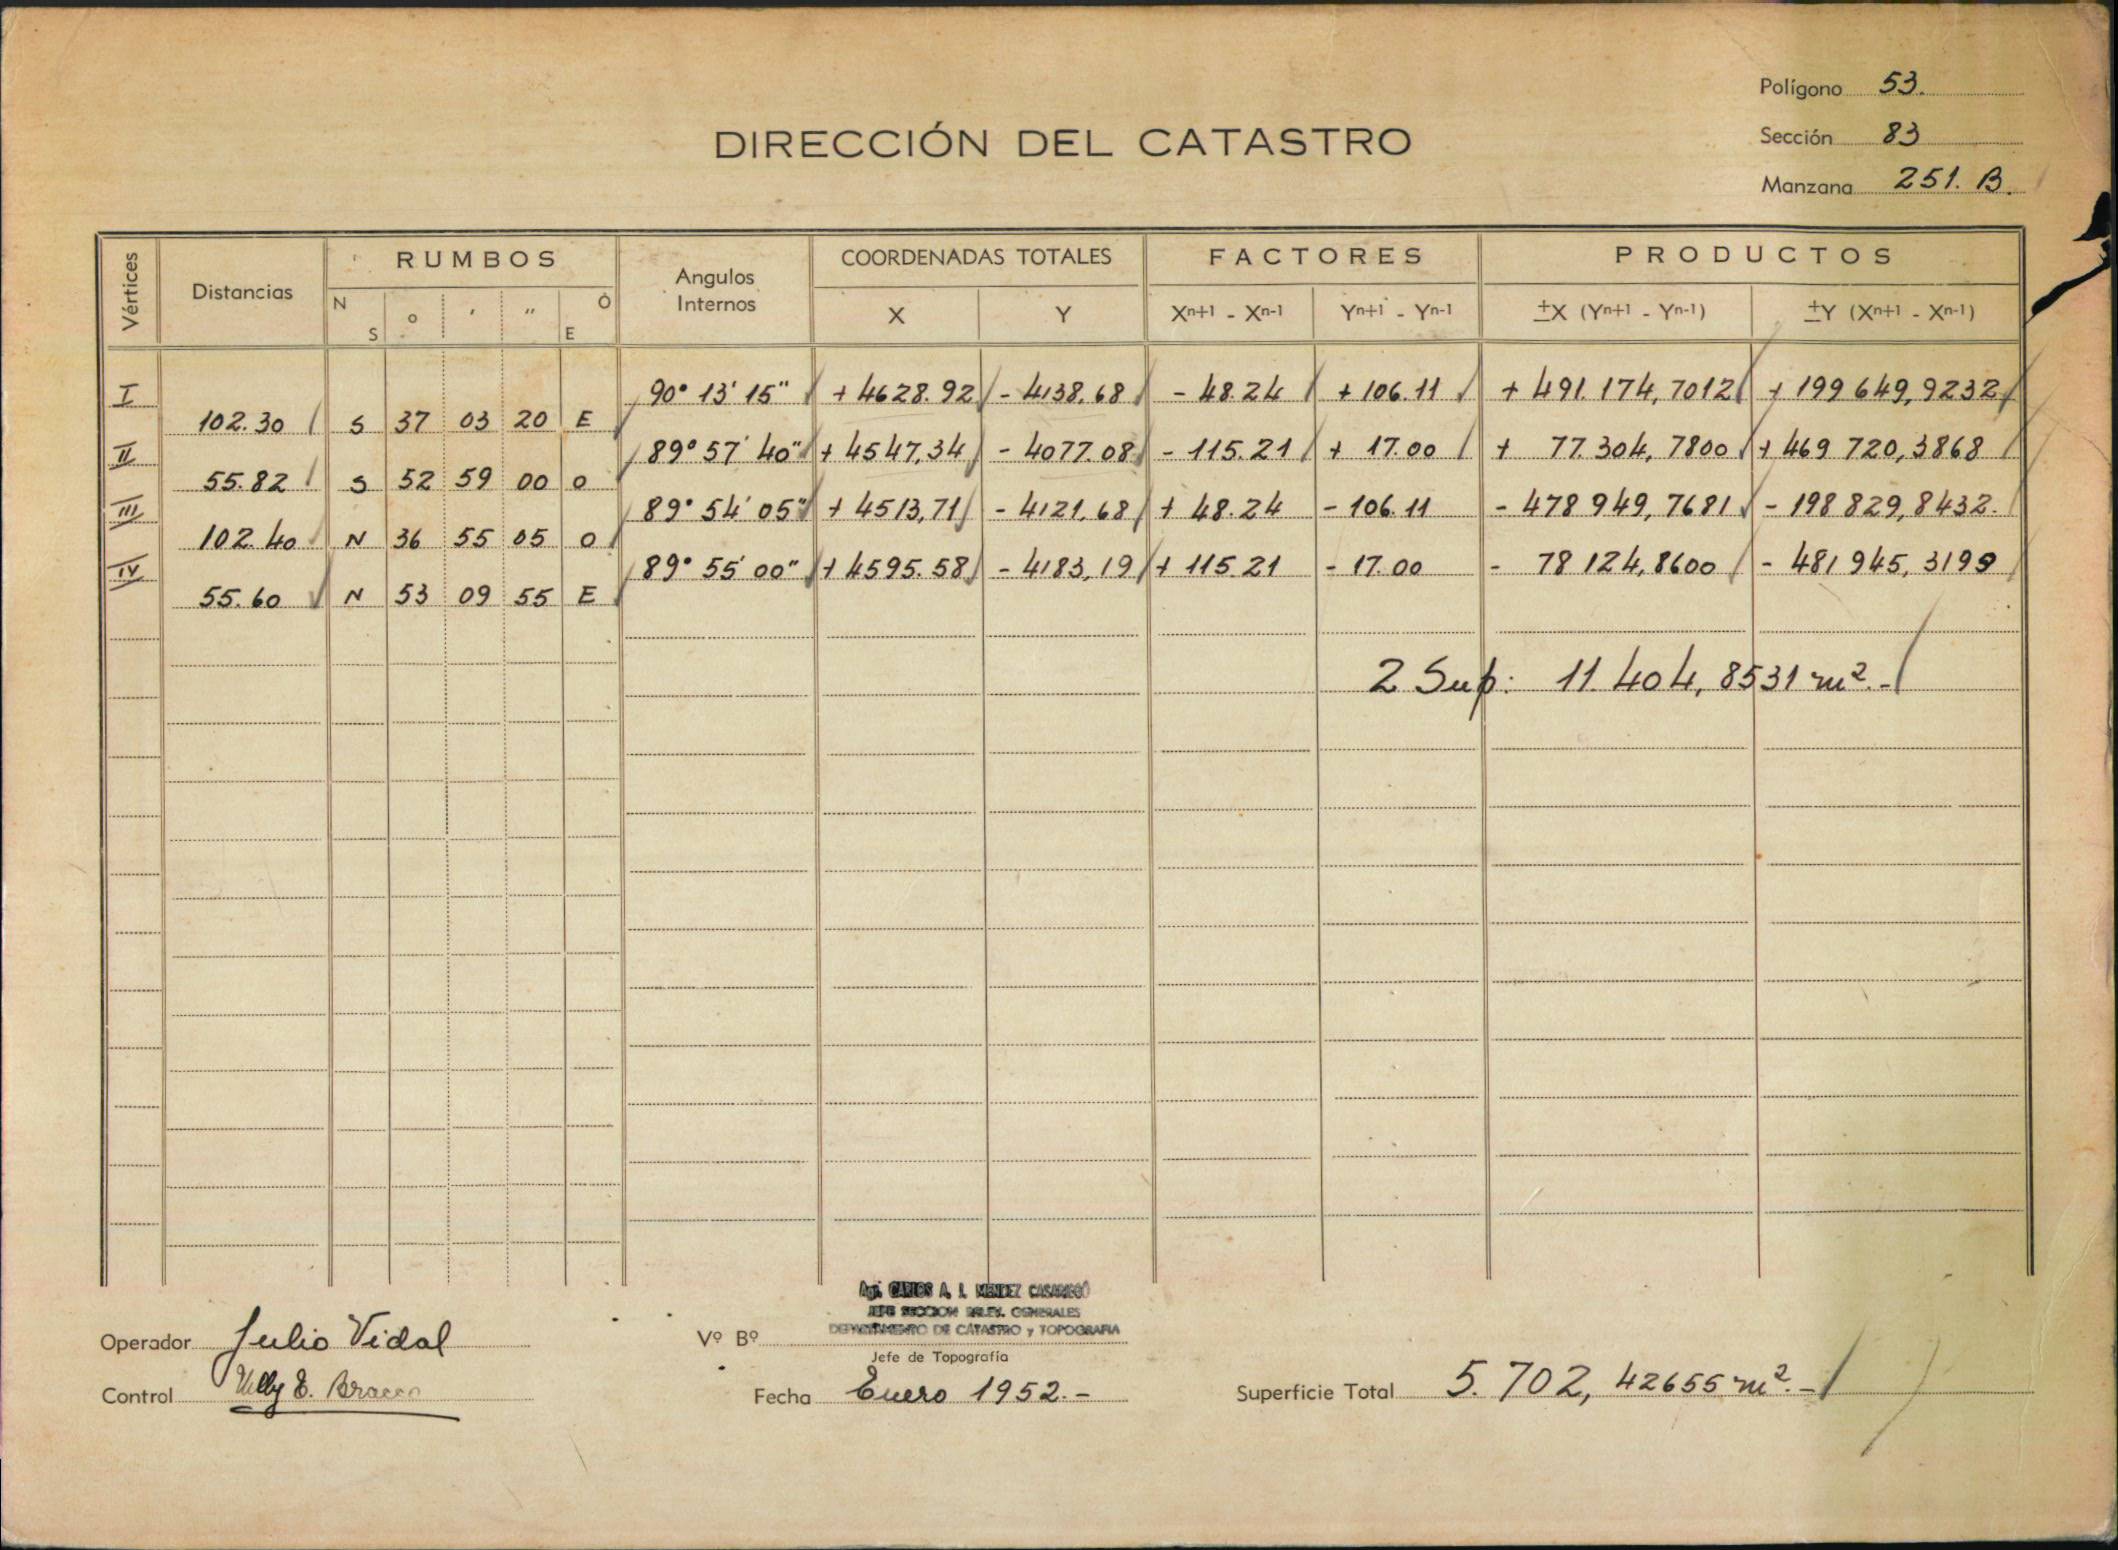 Polígono 53.
DIRECCIÓN DEL CATASTRO
Sección 83
Manzana 251. B.
Vértices Distancias RUMBOS Angulos Internos COORDENADAS TOTALES FACTORES PRODUCTOS
N S o ' " O E X Y Xn+1 - Xn-1 Yn+1 - Yn-1 ±X (Yn+1 - Yn-1) ±Y (Xn+1 - Xn-1)
I 90° 13' 15" + 4628.92 - 4138.68 - 48.24 + 106.11 + 491.174,7012 + 199 649,9232
102.30 S 37 03 20 E
II 89° 57' 40" + 4547,34 - 4077.08 - 115.21 + 17.00 + 77.304,7800 + 469 720,3868
55.82 S 52 59 00 O
III 89° 54' 05" + 4513,71 - 4121.68 + 48.24 - 106.11 - 478 949,7681 - 198 829,8432.
102.40 N 36 55 05 O
IV 89° 55' 00" + 4595.58 - 4183,19 + 115.21 - 17.00 - 78 124,8600 - 481 945,3199
55.60 N 53 09 55 E
2 Sup: 11.404,8531 m². -
Agr. CARLOS A. I. MENDEZ CASARIEGO
JEFE SECCION RELEV. GENERALES
DEPARTAMENTO DE CATASTRO y TOPOGRAFIA
Operador Julio Vidal Vº Bº
Jefe de Topografía
Control Nelly E. Bracco Fecha Enero 1952.- Superficie Total 5.702,42655 m².-